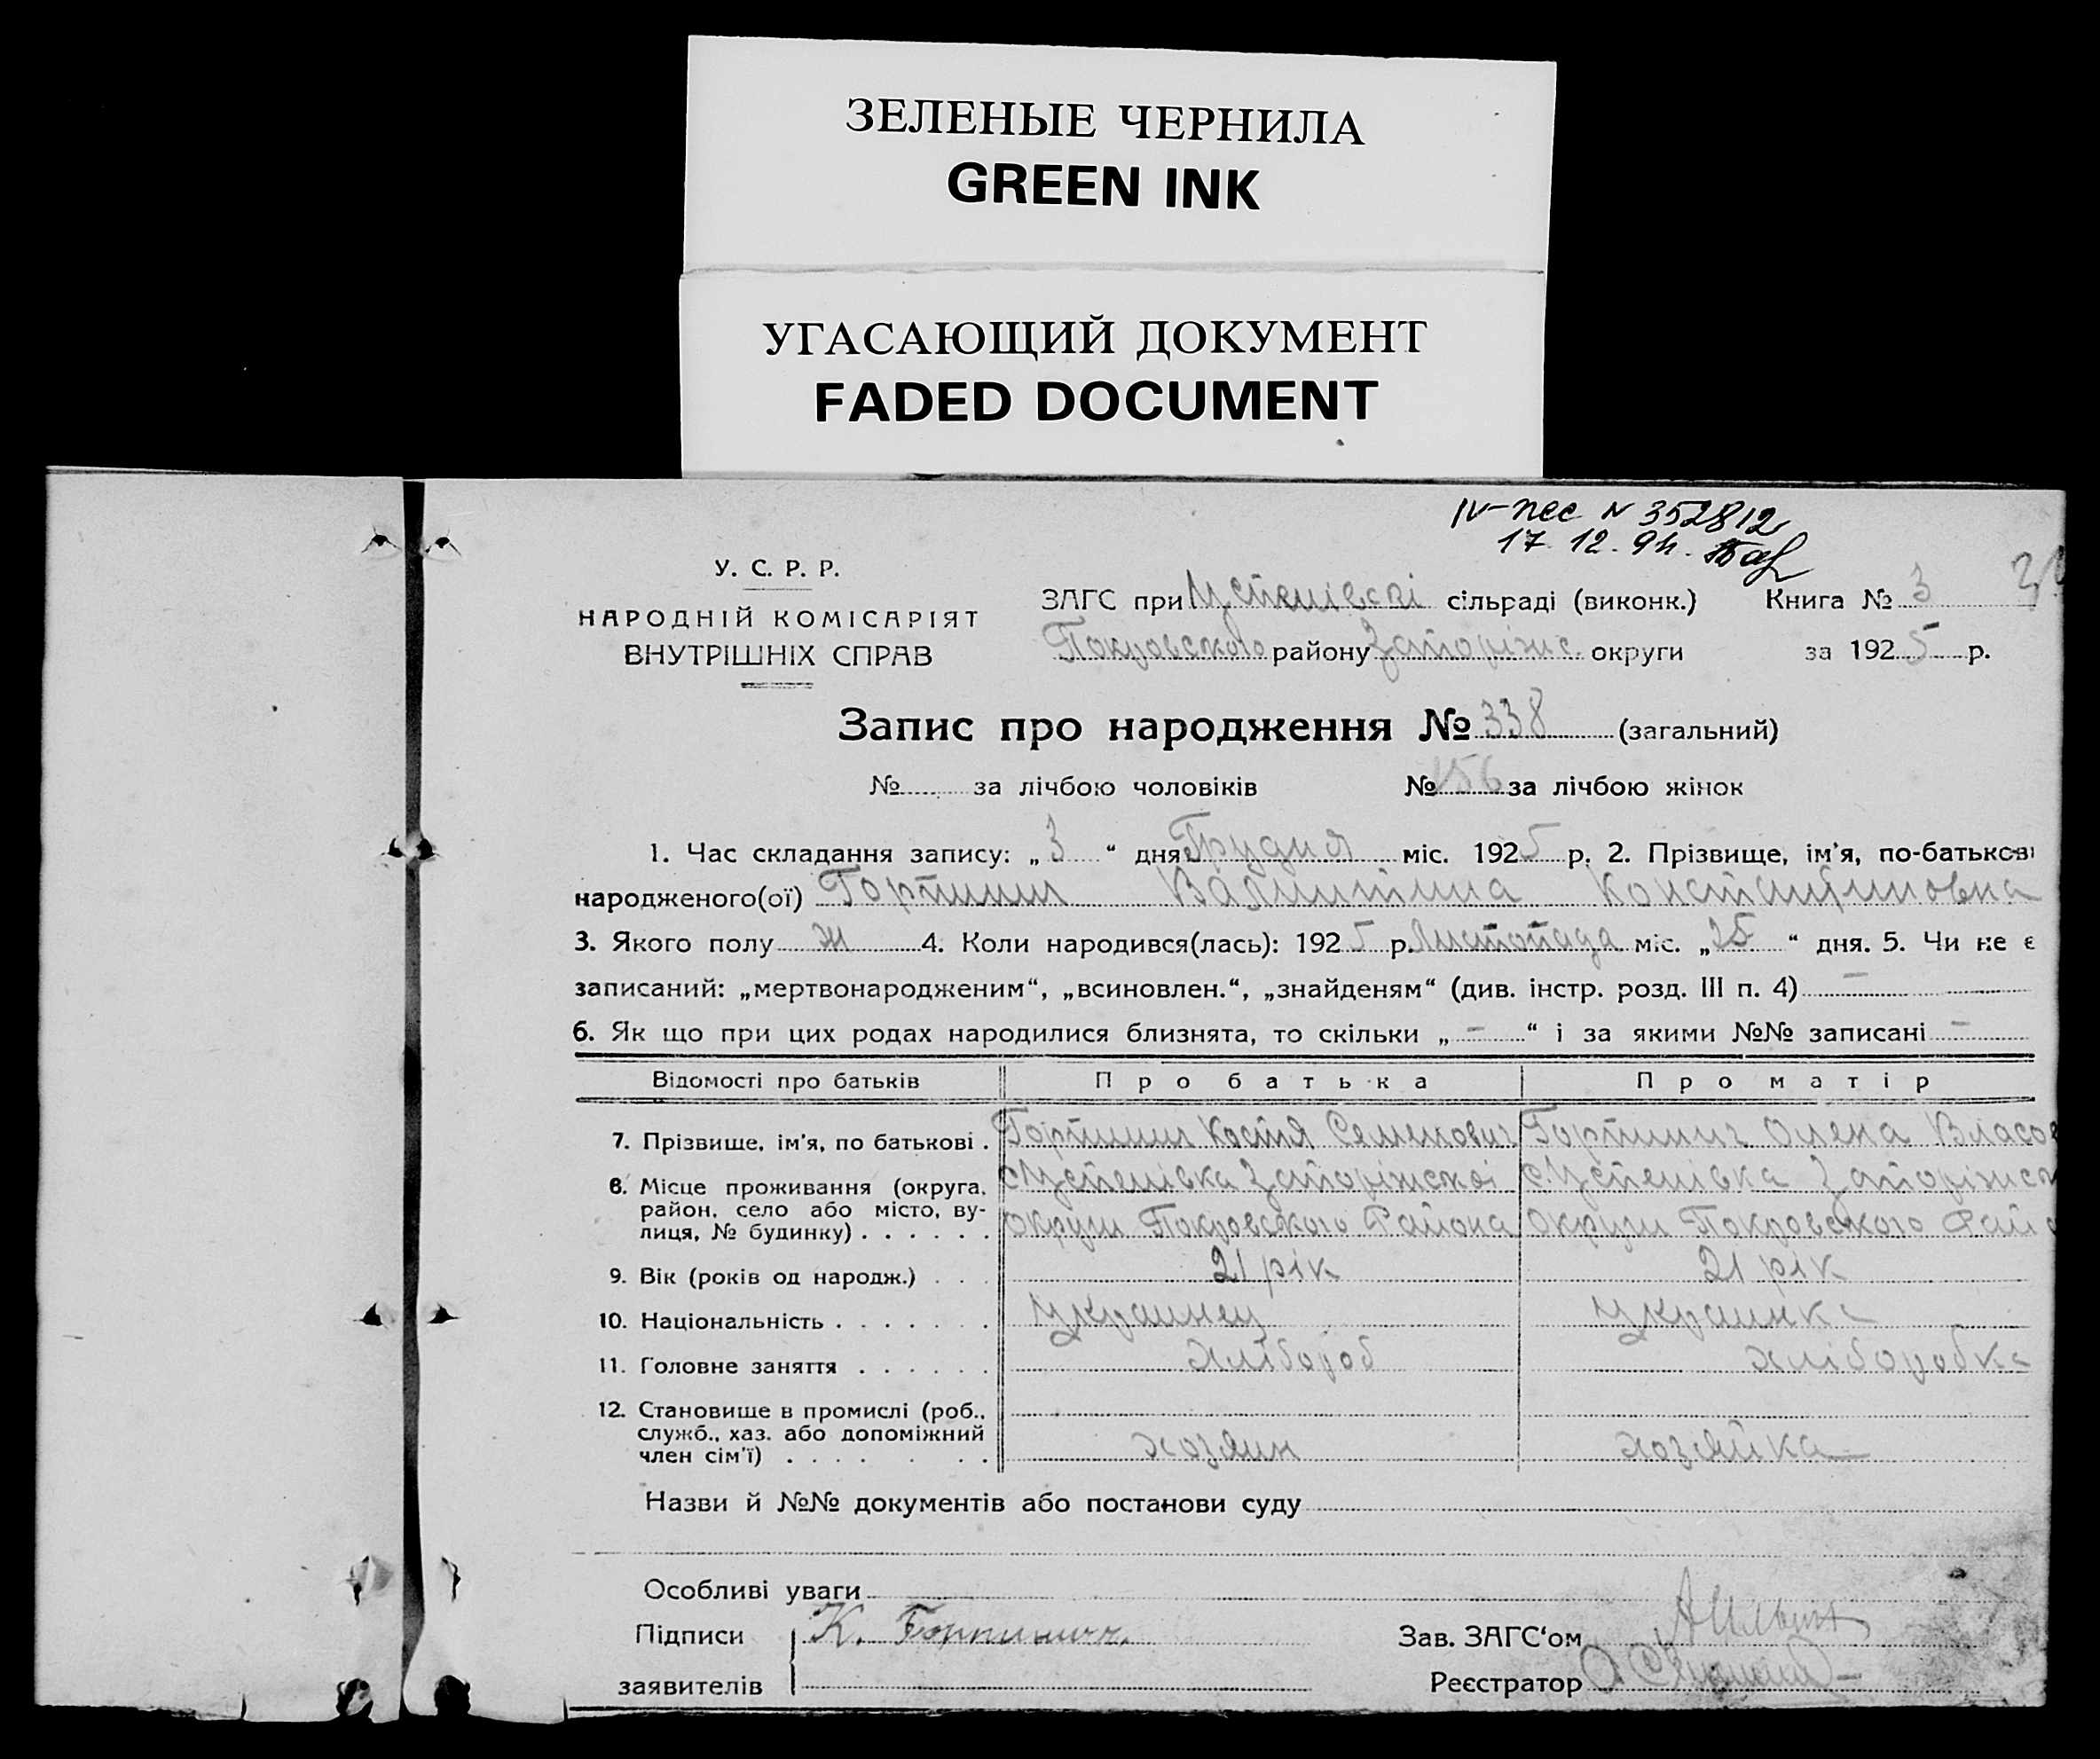 ЗЕЛЕНЫЕ ЧЕРНИЛА
GREEN INK
УГАСАЮЩИЙ ДОКУМЕНТ
FADED DOCUMENT
IV-ЖС N 352812
17. 12. 94.
У. С. Р. Р.
НАРОДНІЙ КОМІСАРІЯТ
ВНУТРІШНІХ СПРАВ
ЗАГС при Успенівскі сільраді (виконк.) Книга № 3
Покровского району Запоріжс. округи за 1925 р.
Запис про народження № 338 (загальний)
№ за лічбою чоловіків № 156 за лічбою жінок
1. Час складання запису: „3“ дня Грудня міс. 1925 р. 2. Прізвище, ім’я, по-батькові
народженого(ої) Горпинич Валинтина Константиновна
3. Якого полу ж 4. Коли народився(лась): 1925 р. Листопада міс. „25“ дня. 5. Чи не є
записаний: „мертвонародженим“, „всиновлен.“, „знайденям“ (див. інстр. розд. III п. 4) —
6. Як що при цих родах народилися близнята, то скільки „—“ і за якими №№ записані —
Відомості про батьків Про батька Про матір
7. Прізвище, ім’я, по батькові . Горпинич Костя Семенович Горпинич Олена Власо
8. Місце проживання (округа, с. Успенівка Запоріжскоі с. Успенівка Запоріжск
район, село або місто, ву-
лиця, № будинку) . . . . . . округи Покровского Района округи Покровского Райо
9. Вік (років од народж.) . . . 21 рік 21 рік
10. Національність . . . . . . . украинец украинка
11. Головне заняття . . . . . . хлібороб хліборобка
12. Становище в промислі (роб.,
служб., хаз. або допоміжний
член сім’ї) . . . . . . . хозяин хозяйка
Назви й №№ документів або постанови суду
Особливі уваги
Підписи К. Горпинич. Зав. ЗАГС‘ом
заявителів Реєстратор